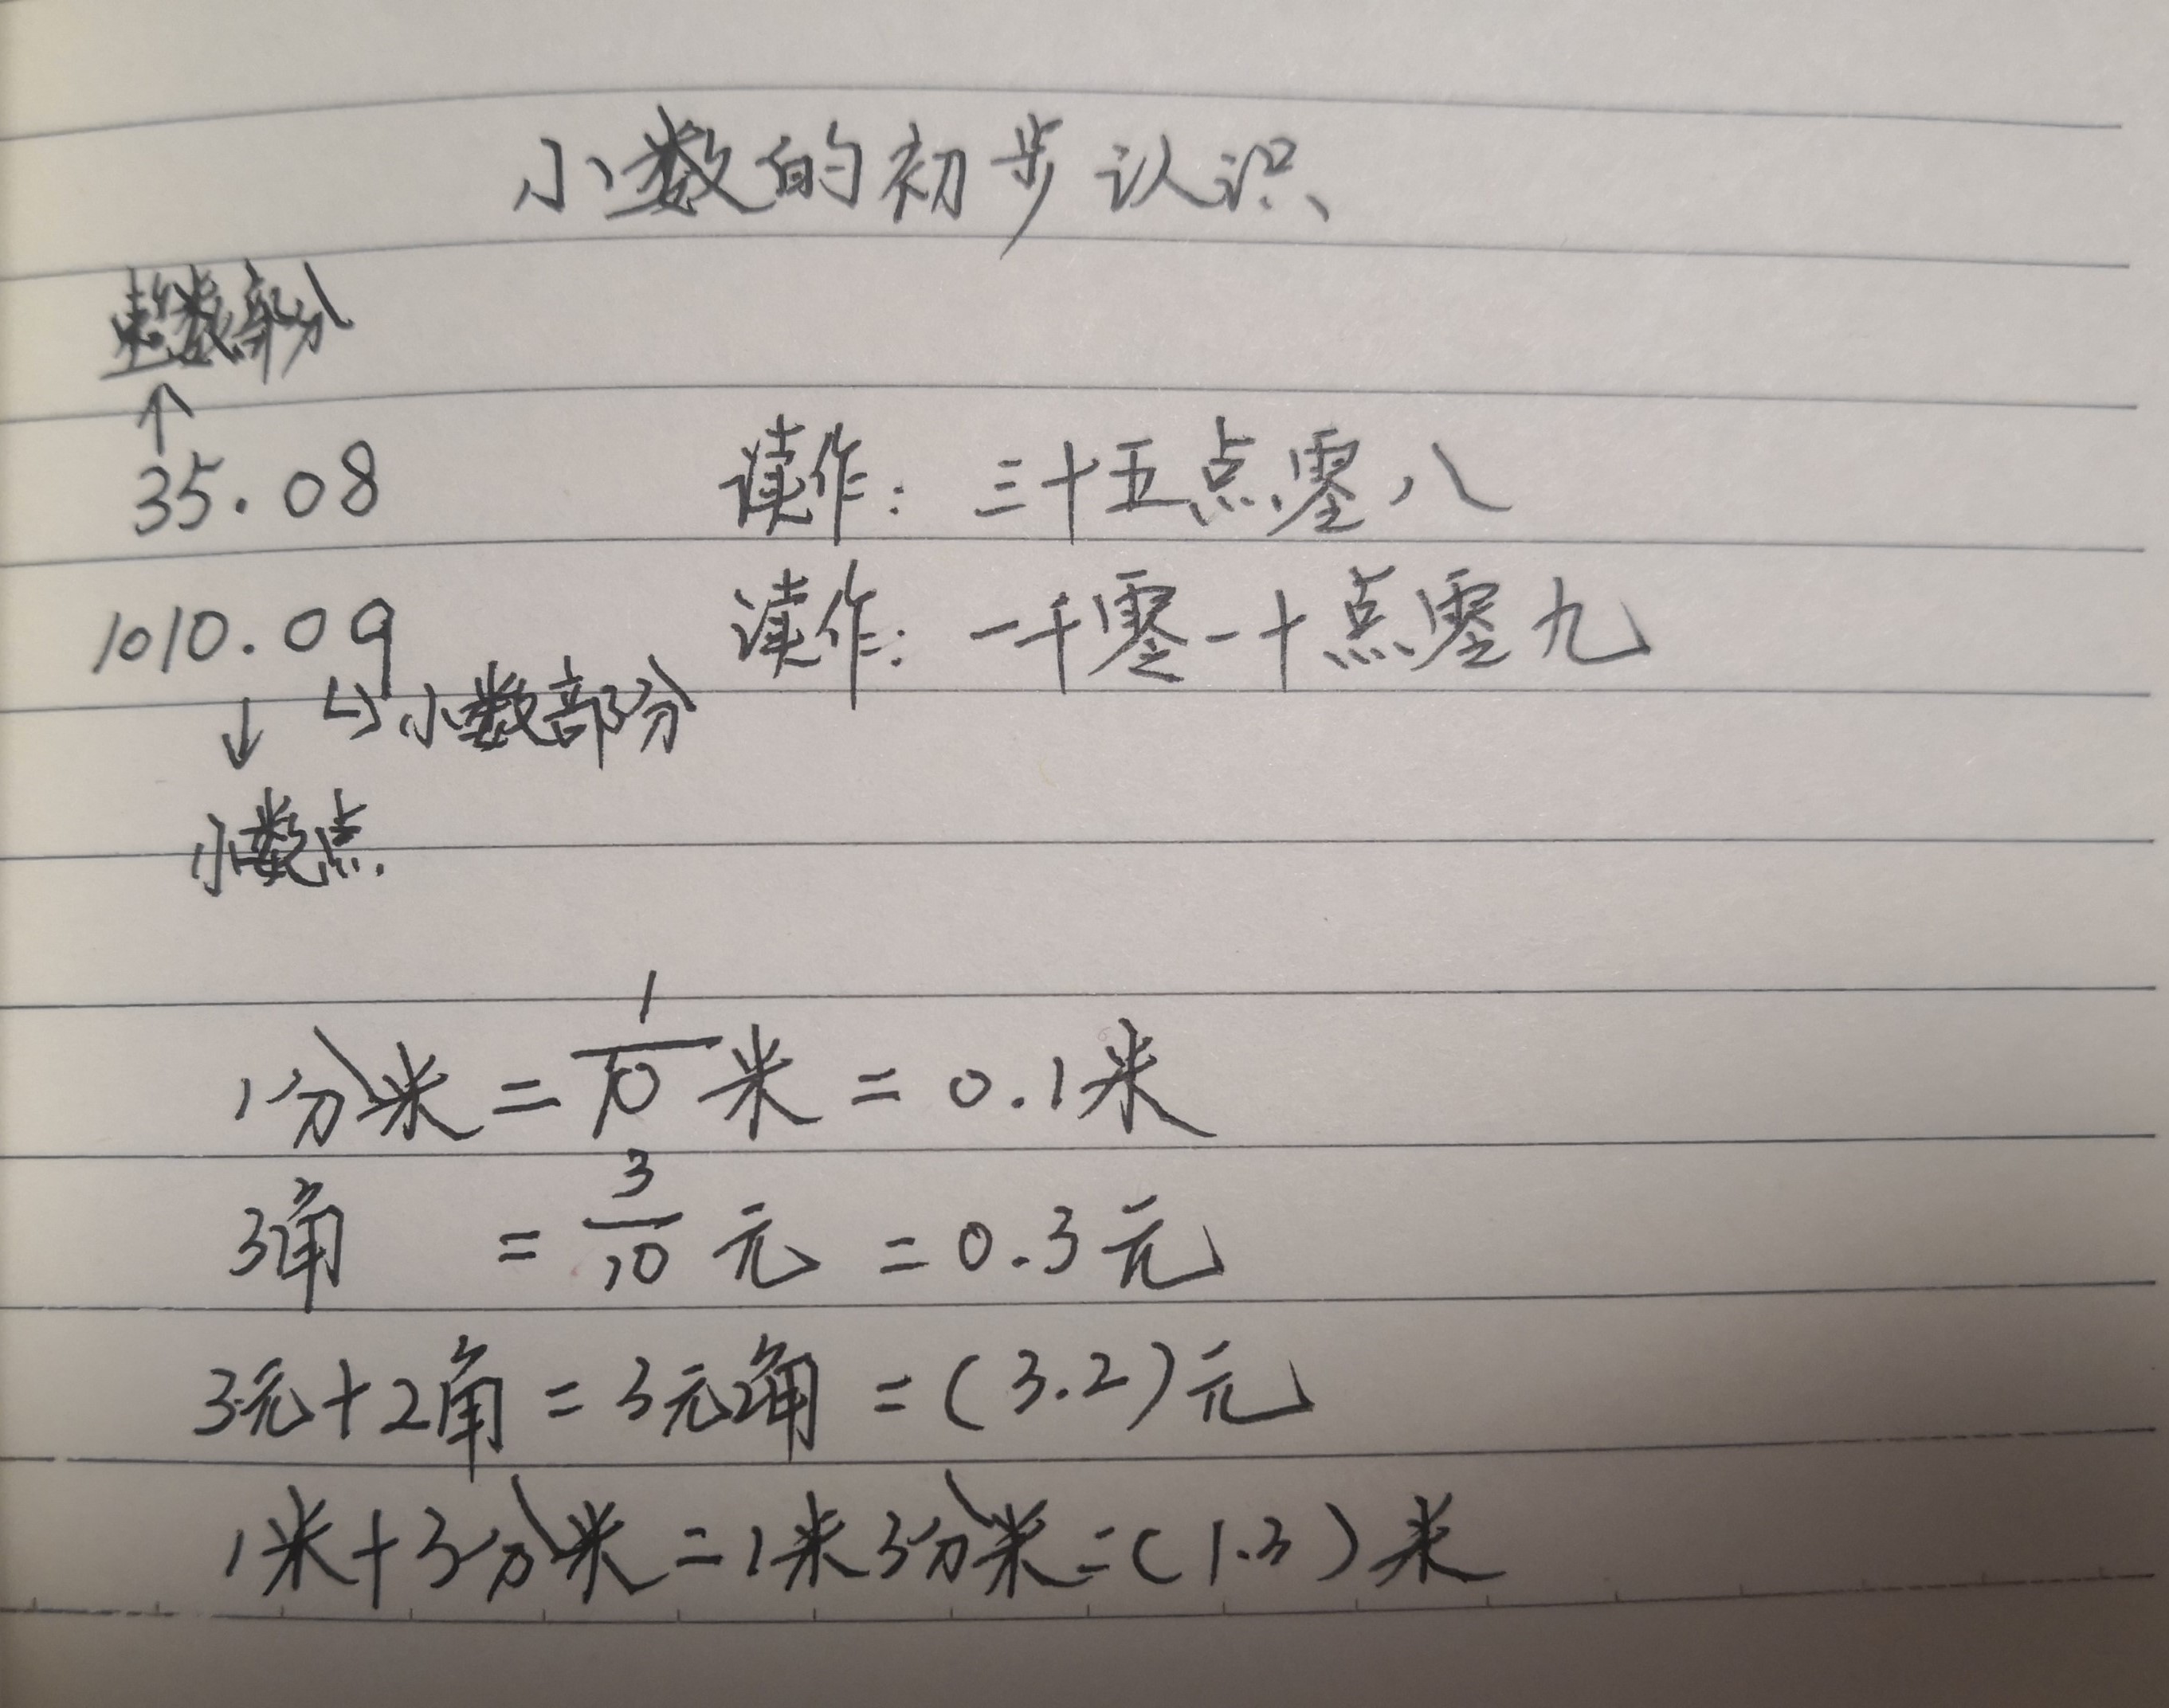 小数的初步认识
整数部分
↑
35.08 读作：三十五点零八
1010.09 读作：一千零一十点零九
↓ ↳小数部分
小数点.
1分米=1/10米=0.1米
3角=3/10元=0.3元
3元+2角=3元2角=(3.2)元
1米+3分米=1米3分米=(1.3)米